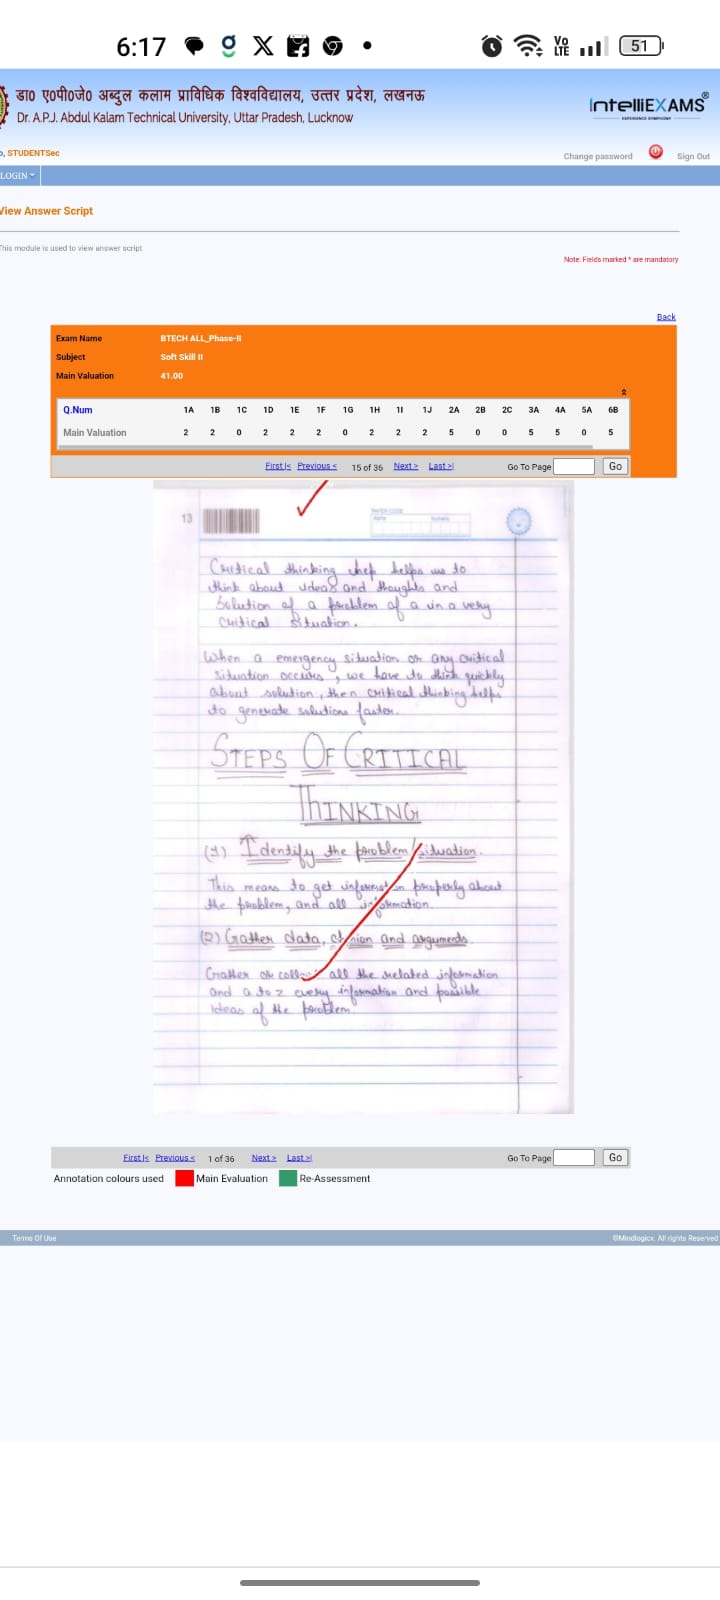 6:17
Vo
LTE
51
डा० ए०पी०जे० अब्दुल कलाम प्राविधिक विश्वविद्यालय, उत्तर प्रदेश, लखनऊ
Dr. A.P.J. Abdul Kalam Technical University, Uttar Pradesh, Lucknow
IntelliEXAMS
o, STUDENTSec
Change password
Sign Out
LOGIN
View Answer Script
This module is used to view answer script
Note: Fields marked * are mandatory
Back
Exam Name BTECH ALL_Phase-II
Subject Soft Skill II
Main Valuation 41.00
Q.Num 1A 1B 1C 1D 1E 1F 1G 1H 1I 1J 2A 2B 2C 3A 4A 5A 6B
Main Valuation 2 2 0 2 2 2 0 2 2 2 5 0 0 5 5 0 5
First|< Previous < 15 of 36 Next > Last >| Go To Page Go
13
PAPER CODE
Critical thinking helps us to
think about ideas and thoughts and
Solution of a problem of a in a very
Critical situation.
When a emergency situation or any critical
situation occurs, we have to think quickly
about solution, then critical thinking helps
to generate solutions faster.
STEPS OF CRITICAL
THINKING
(1) Identify the problem/situation.
This means to get information properly about
the problem, and all information.
(2) Gather data, opinion and arguments.
Gather or collect all the related information
and a to z every information and possible
ideas of the problem.
First|< Previous < 1 of 36 Next > Last >| Go To Page Go
Annotation colours used Main Evaluation Re-Assessment
Terms Of Use
©Mindlogicx. All rights Reserved